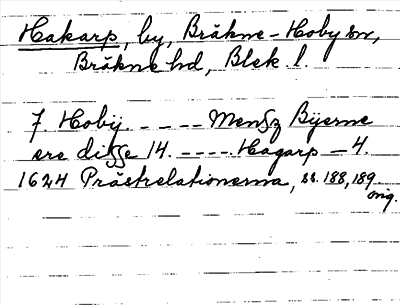 Hakarp, by, Bräkne-Hoby sn,
Bräkne hd, Blek. l.
7. Hobÿ. - - - - - Mensz Bÿerne
ere disse 14. - - - - Hagarp - 4.
1624 Prästrelationerna, ss. 188, 189
orig.